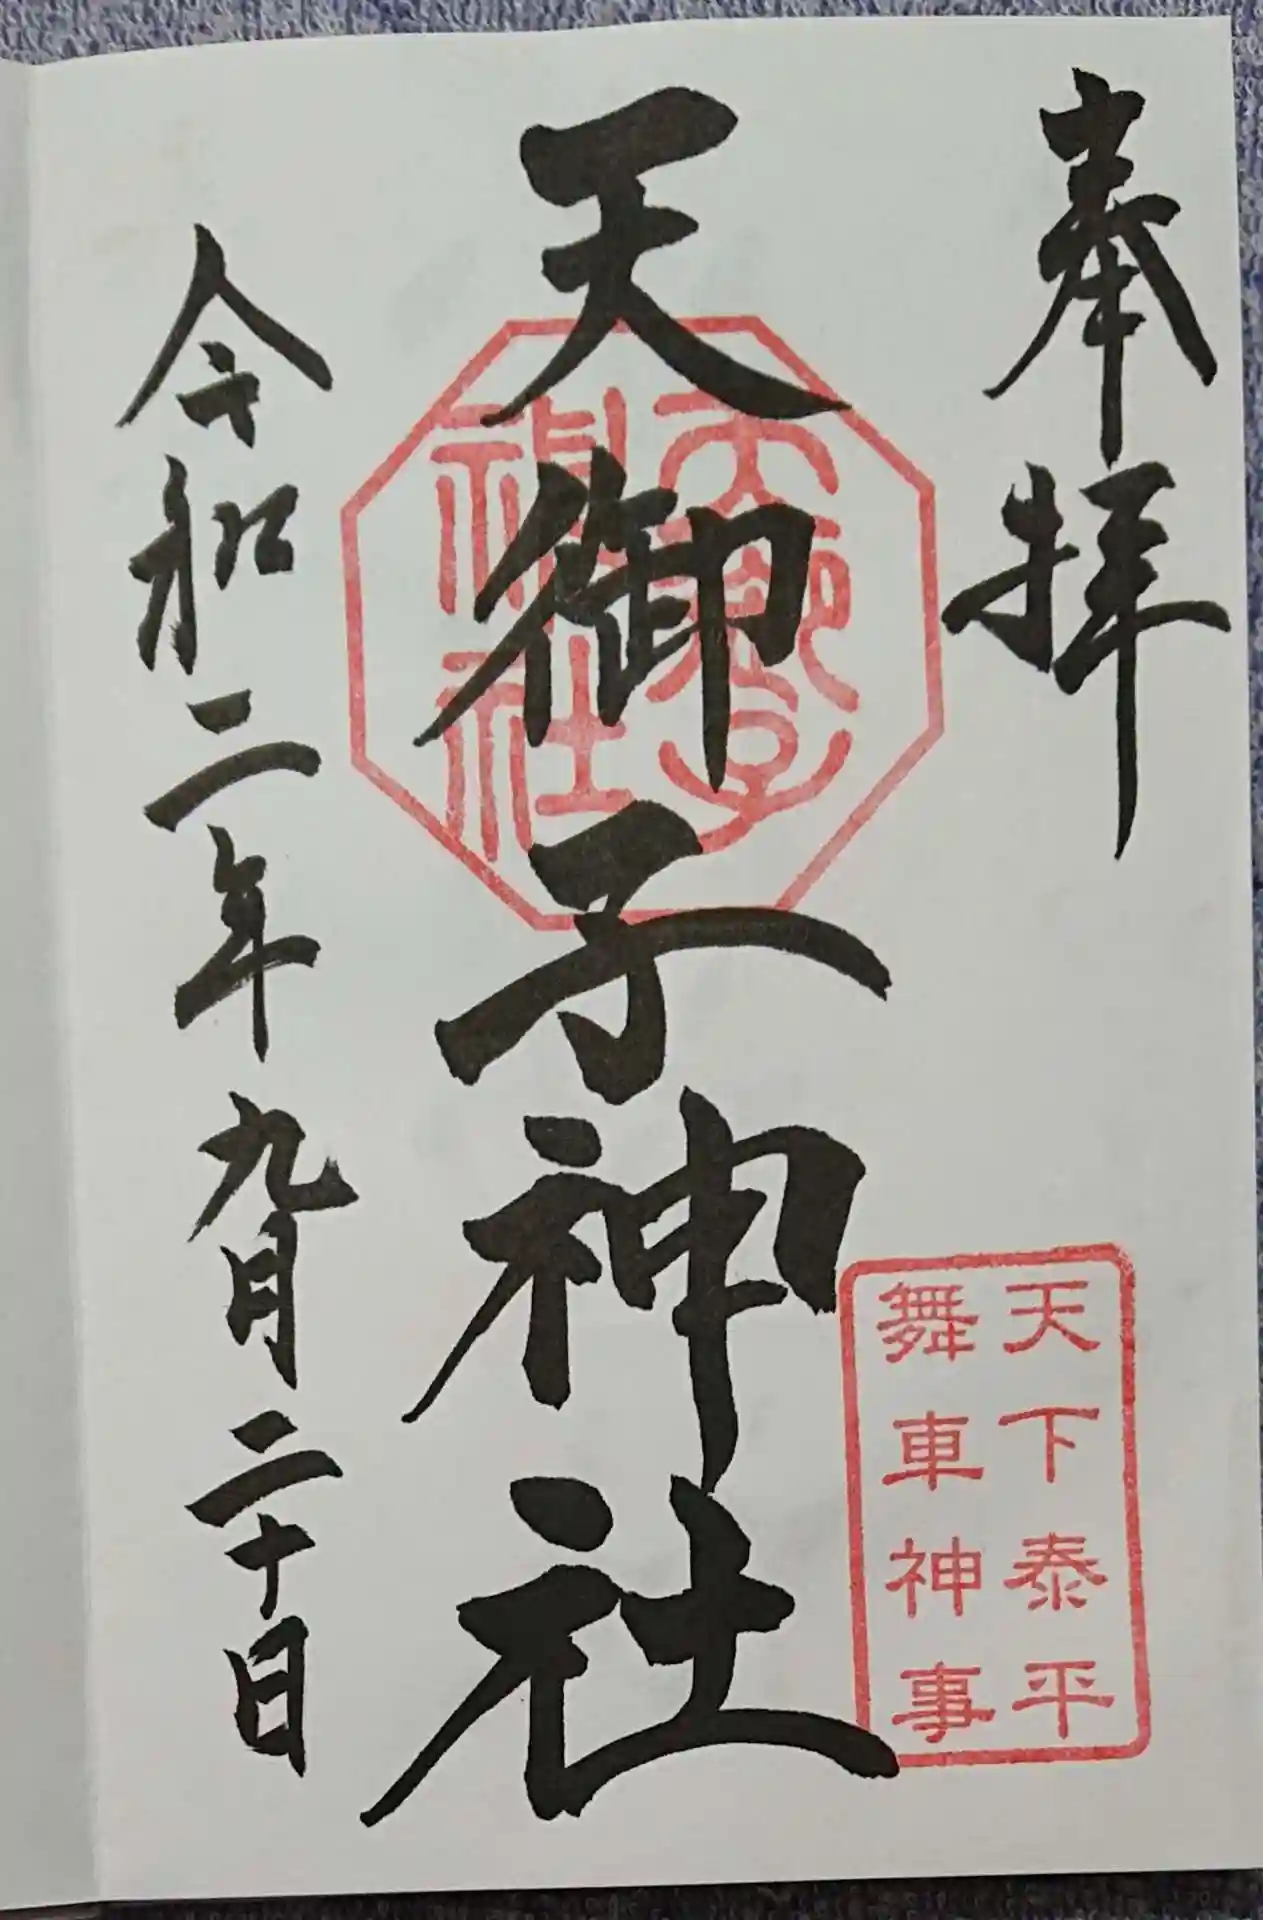 奉拝
天下泰平
舞車神事
天御子神社
天御子
神社
令和二年九月二十日